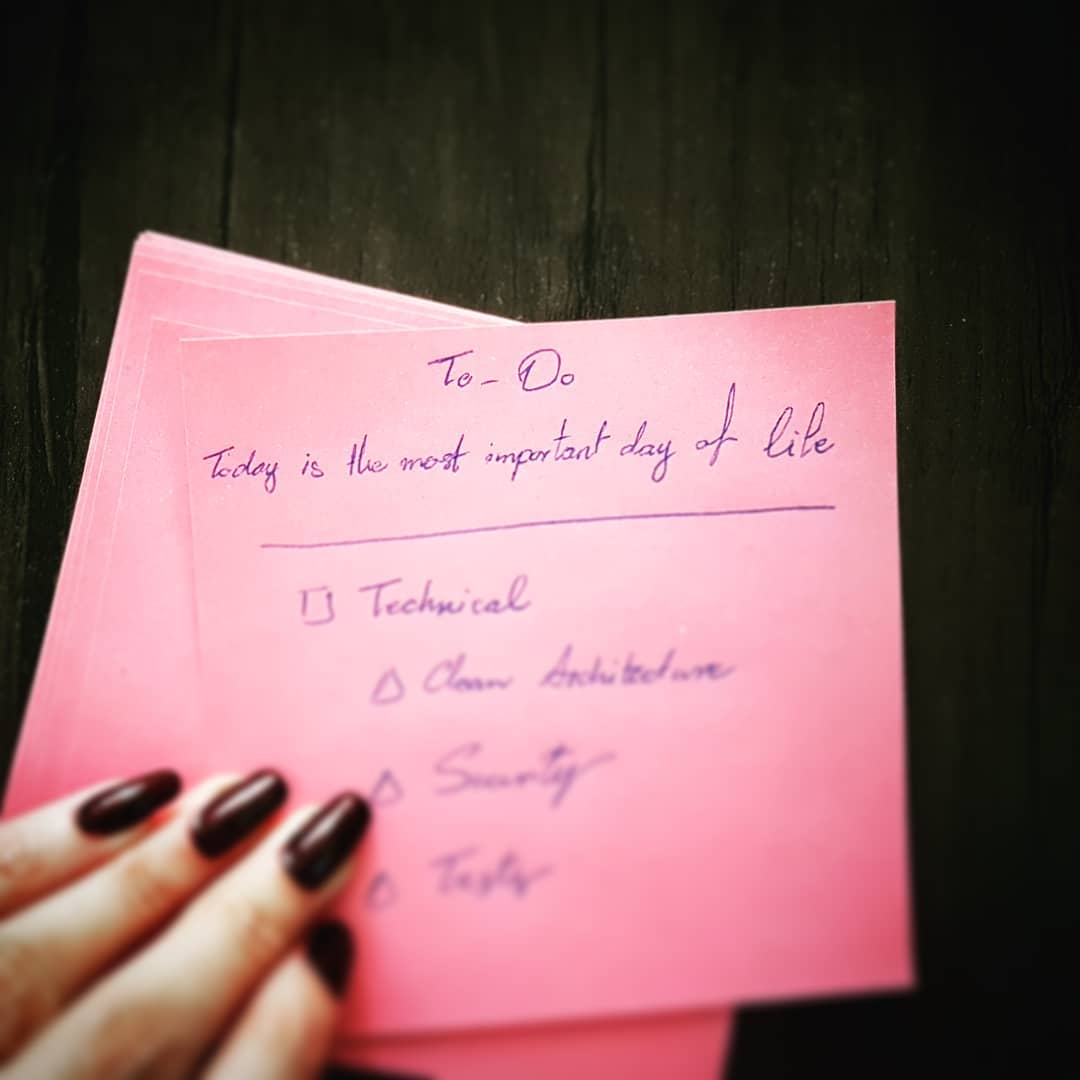 To-Do
Today is the most important day of life
Technical
Clean Architecture
Security
Tests